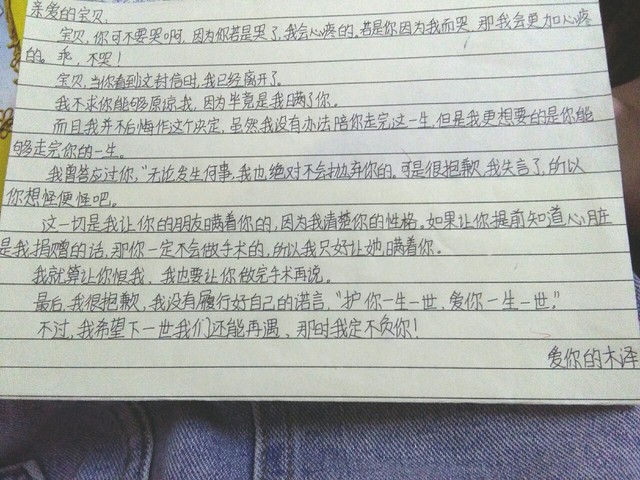 亲爱的宝贝,
宝贝,你可不要哭啊,因为你若是哭了,我会心疼的。若是你因为我而哭,那我会更加心疼
的。乖,不哭!
宝贝,当你看到这封信时,我已经离开了。
我不求你能够原谅我,因为毕竟是我瞒了你。
而且我并不后悔作这个决定,虽然我没有办法陪你走完这一生,但是我更想要的是你能
够走完你的一生。
我曾答应过你,“无论发生何事,我也绝对不会抛弃你的。可是很抱歉,我失言了,所以
你想怪便怪吧。
这一切是我让你的朋友瞒着你的,因为我清楚你的性格。如果让你提前知道心脏
是我捐赠的话,那你一定不会做手术的,所以我只好让她瞒着你。
我就算让你恨我,我也要让你做完手术再说。
最后,我很抱歉,我没有履行好自己的诺言,“护你一生一世,爱你一生一世。”
不过,我希望下一世我们还能再遇,那时我定不负你!
爱你的木泽